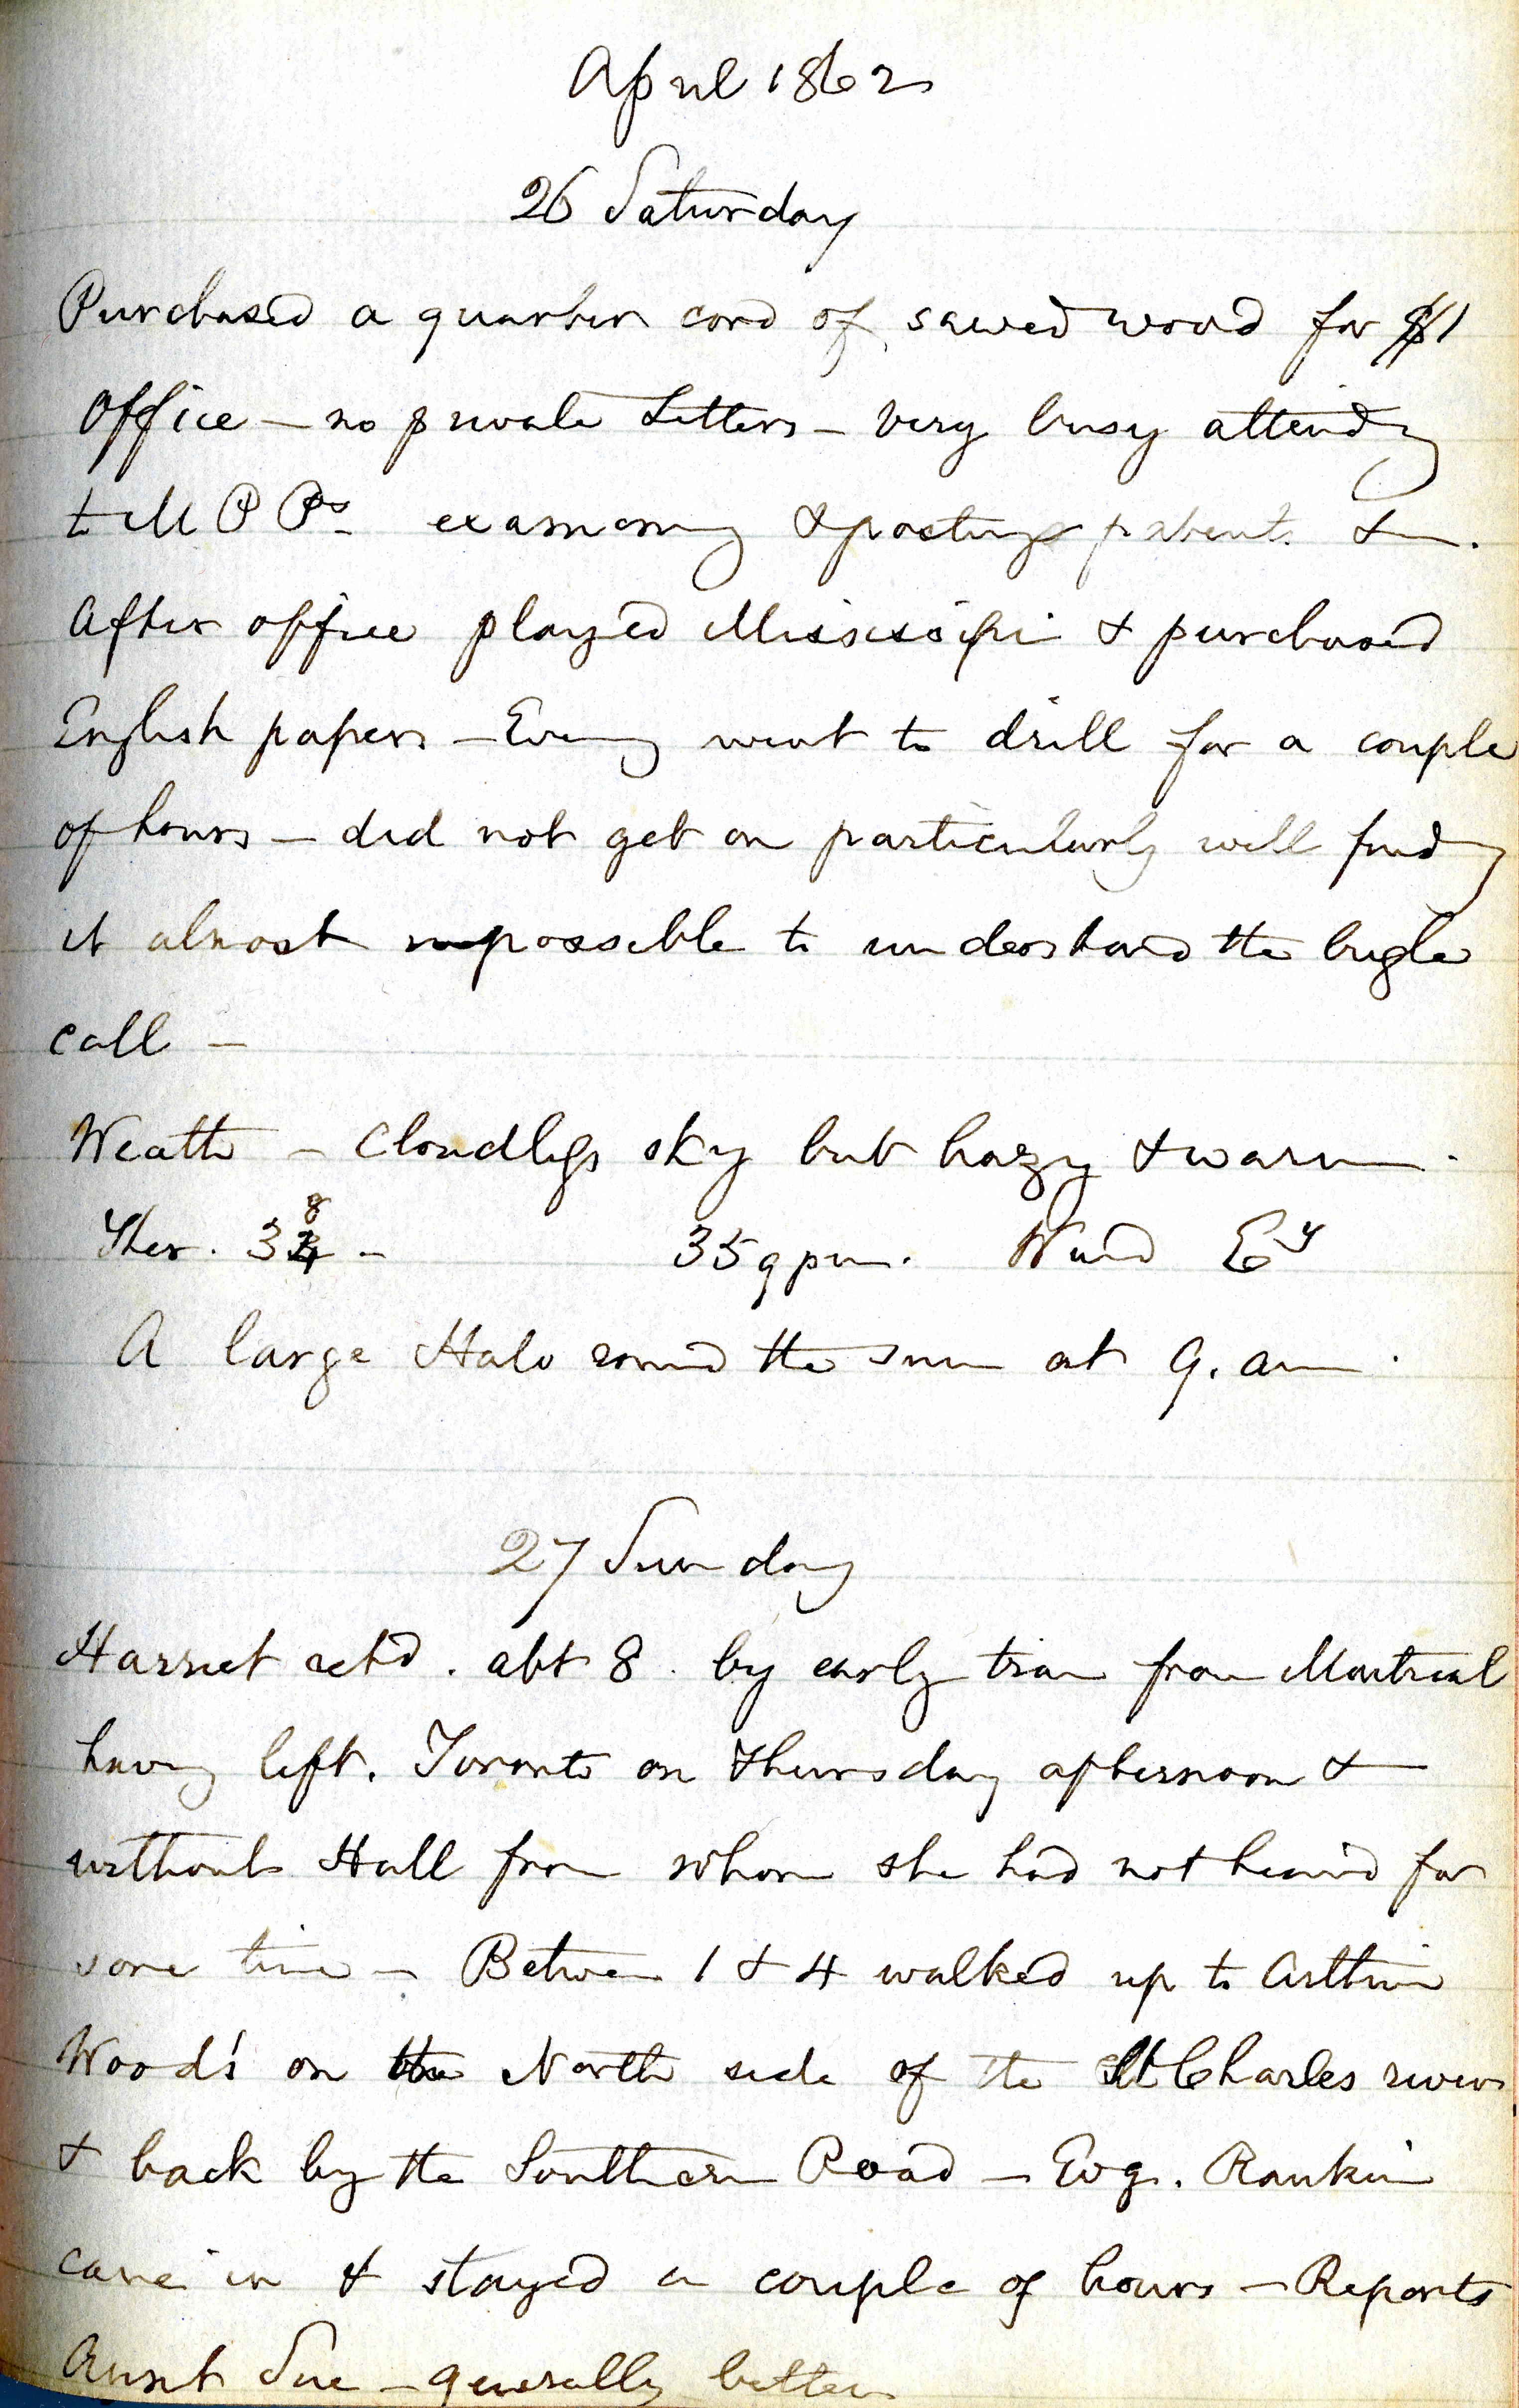 April 1862
26 Saturday
Purchased a quarter cord of sawed wood for $1
Office — no private Letters — very busy attending
to M P Ps — examining & posting patents &c.
After office played Mississipi & purchased
English papers — Evening went to drill for a couple
of hours — did not get on particularly well finding
it almost impossible to understand the bugle
call —
Weathr — Cloudless sky but hazy & warm.
Ther. 38 — 35 9 pm. Wind Ey
A large Halo round the sun at 9. am.
27 Sunday
Harriet retd. abt 8. by early train from Montreal
having left. Toronto on Thursday afternoon &
without Hall from whom she had not heard for
some time — Between 1 & 4 walked up to Arthur
Wood's on the North side of the St Charles river
& back by the Southern Road — Evg. Rankin
came in & stayed a couple of hours — Reports
Aunt Sue — generally better